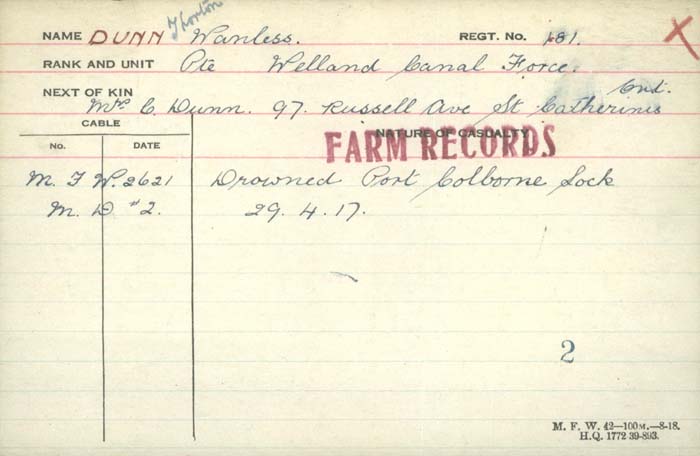 Thorton
NAME DUNN Wanless. REGT. No. 181.
RANK AND UNIT Pte Welland Canal Force.
NEXT OF KIN Ont.
Mrs C. Dunn. 97. Russell Ave St Catherines
CABLE NATURE OF CASUALTY
No. DATE FARM RECORDS
M. F. W. 2621 Drowned Port Colborne Lock
M. D #2. 29. 4. 17.
2
M. F. W. 42—100M.—8-18.
H.Q. 1772 39-893.